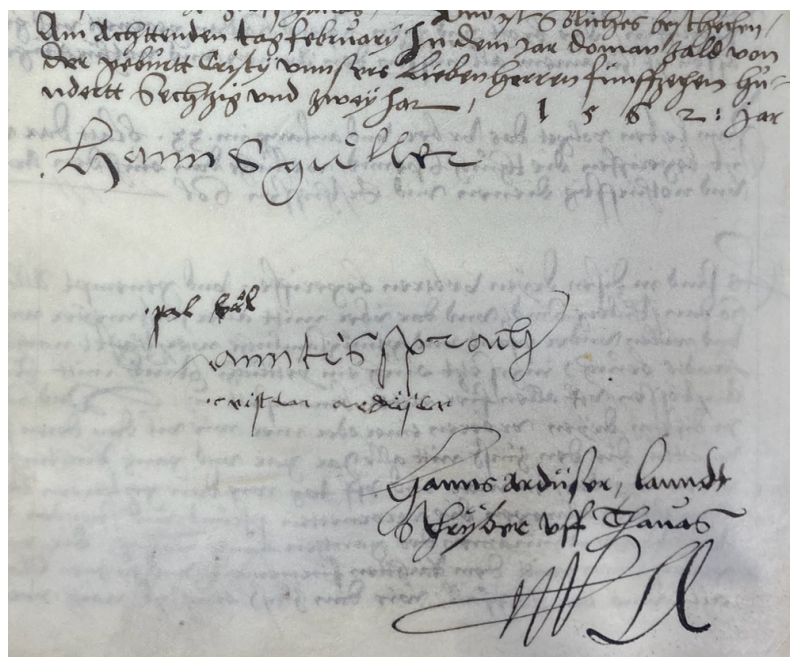 Und ist Söliches beschechen /
Am Achttenden tag february In dem Jar doman zald von
der geburtt Cristÿ unnsers Lieben herren fünffzehen hu-
ndertt Sechtzig und zweÿ Jar / 1 5 6 2 : Jar
Hanns güller
pal bül
anntis sprach
cristen ardüser
Hanns Ardüser, lanndt
Schryber uff Thavas